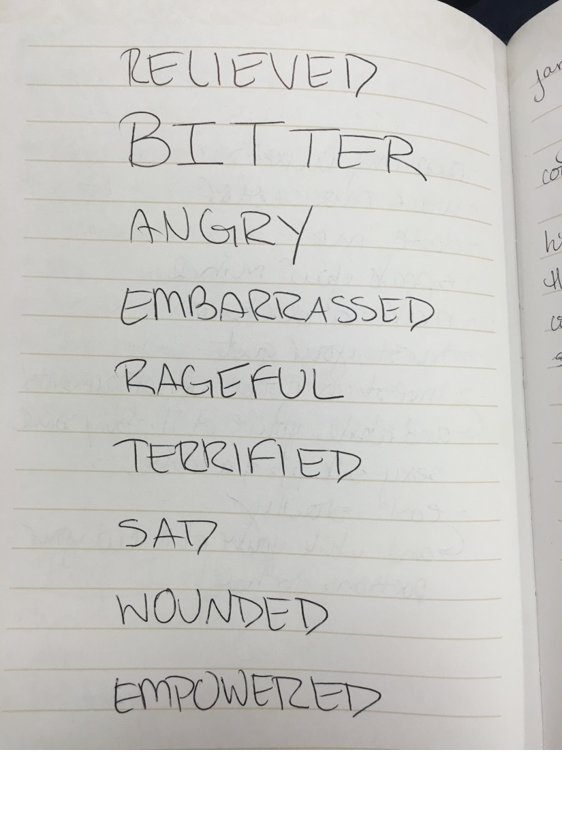 RELIEVED
BITTER
ANGRY
EMBARRASSED
RAGEFUL
TERRIFIED
SAD
WOUNDED
EMPOWERED